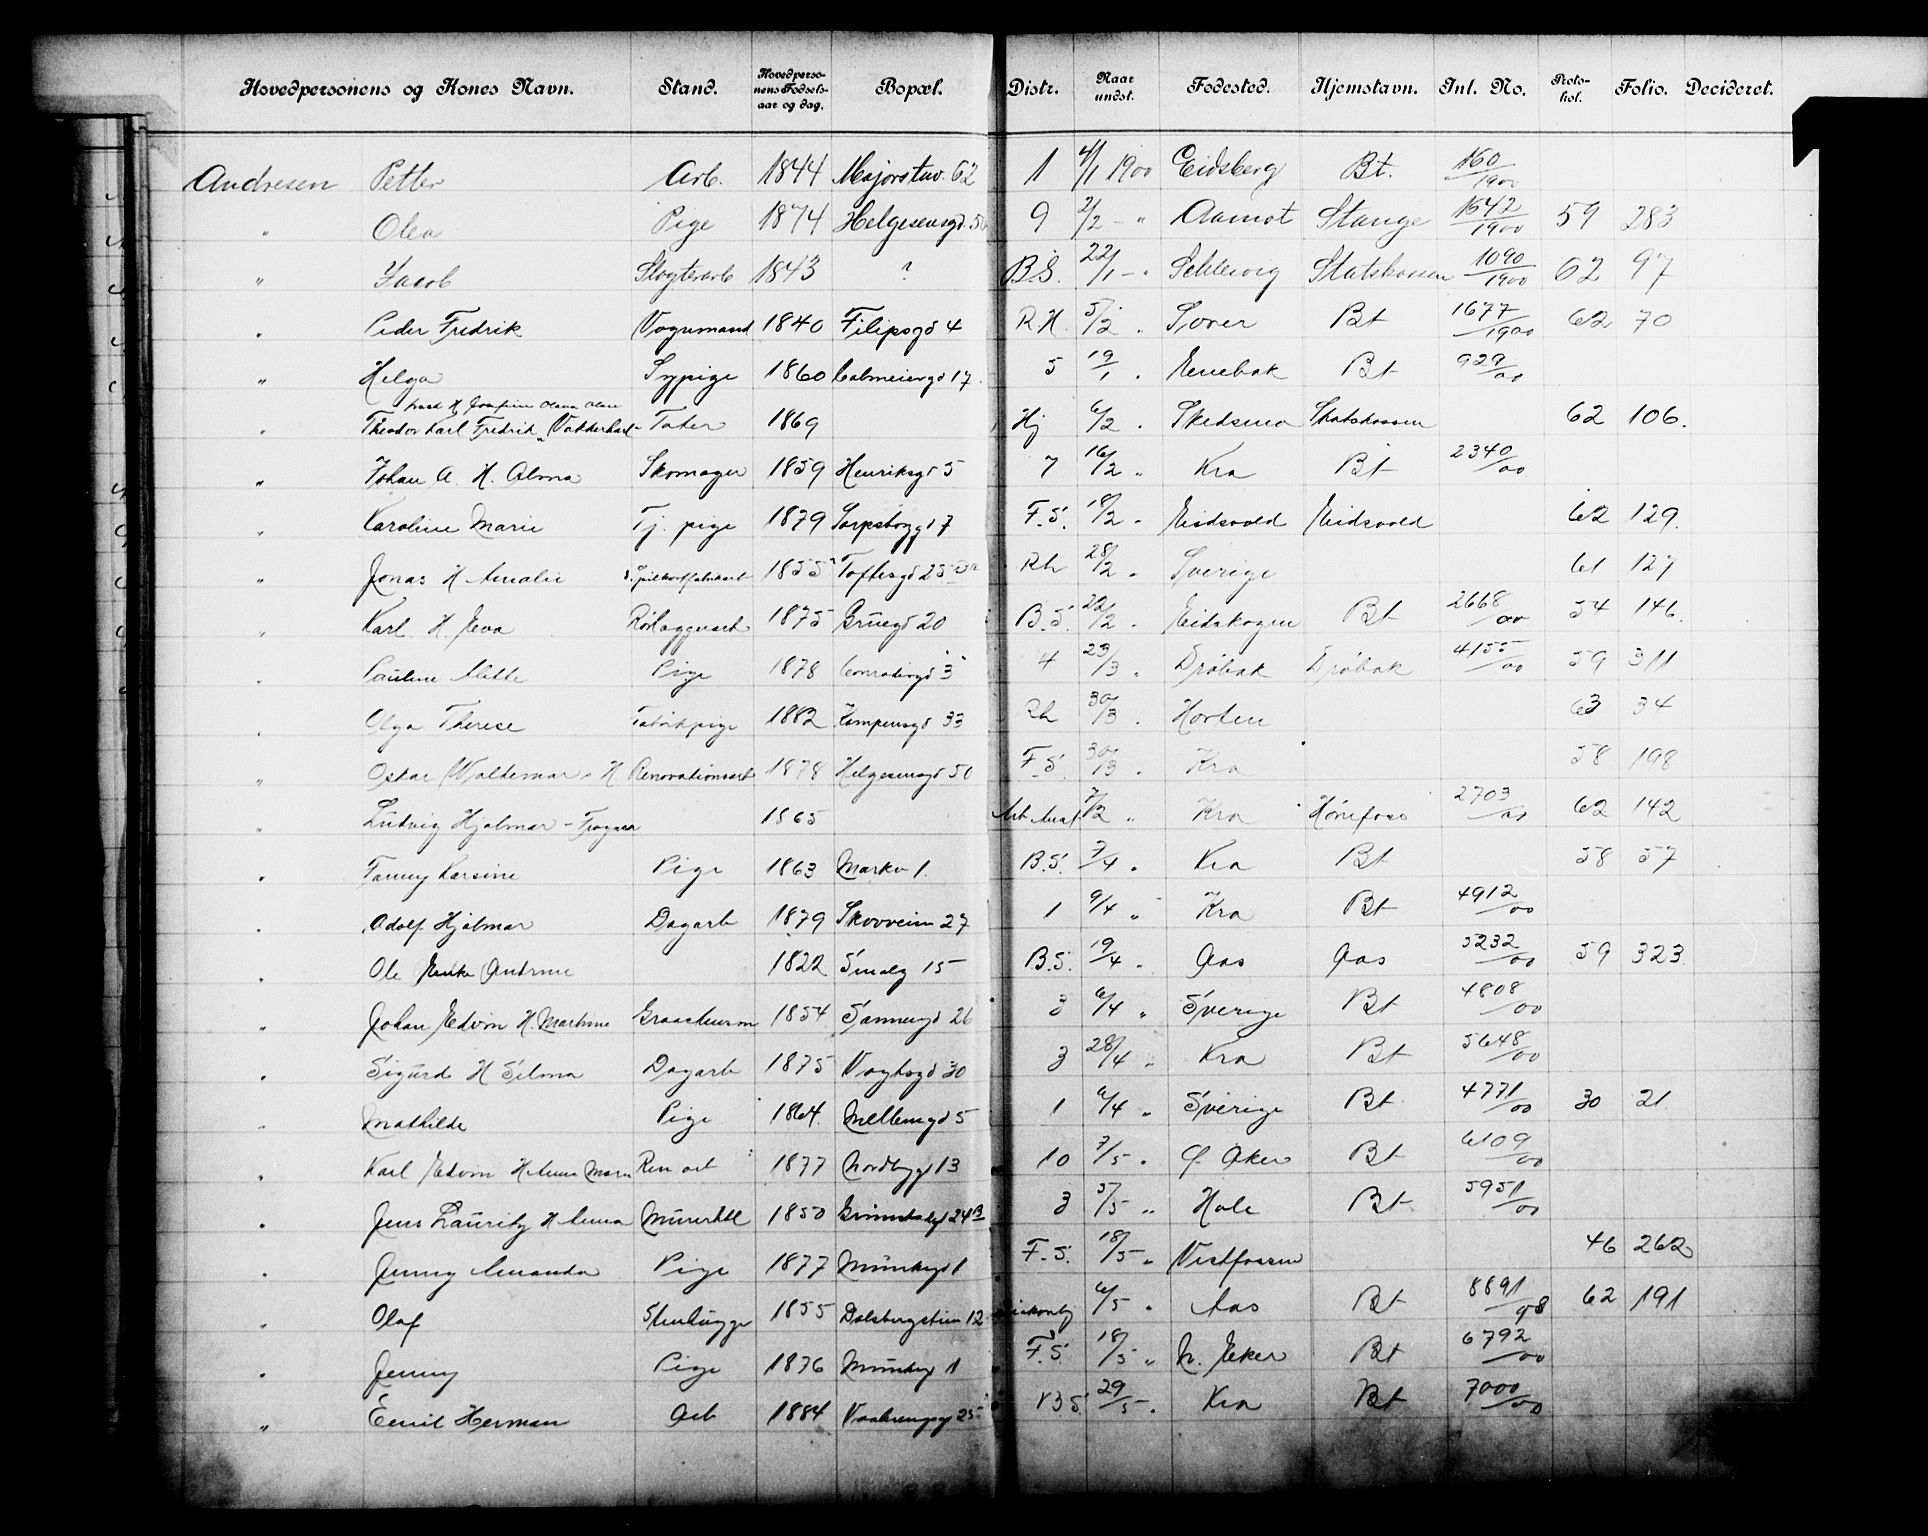 Hovedpersonens og Kones Navn. Stand. Hovedpersonens Fødselsaar og dag. Bopæl. Distr. Naar undst. Fødested. Hjemstavn. Int. No. Protokol. Folio. Decideret.
Andresen Petter Arb. 1844 Majorstuv. 62 1 4/1 1900 Eidsberg Bt. 160/1900
" Olea Pige 1874 Helgesensgd. 50 9 2/2 - " Aamot Stange 1542/1900 59 283
" Jacob Slagterarb 1843 ? B.S. 22/1 - " Schlesvig Statskassen 1090/1900 62 97
" Peder Fredrik Vognmand 1840 Filipsgd 4 R.H. 5/2 " Bt 1677/1900 62 70
" Helga Sypige 1860 Calmeiergd 17. 5 19/1 " Enebak Bt 929/00
" Theodor Karl Fredrik Tater 1869 Hj 6/2 " Skedsmo Statskassen 62 106.
" Johan A. H. Alma Skomager 1859 Henriksgd 5 7 16/2 " Kra Bt 2340/00
" Karoline Marie Tj. pige 1879 Sarpsbogg 7 F.S. 18/2 " Eidsvold Eidsvold 62 129.
" Jonas H Amalie 1855 Toftesgd 25 Rh 28/2 " Sverige 61 127
" Karl H. Eva 1875 Gruegd 20 B.S. 22/2 " Eidskogen Bt 2668/00 54 146.
" Pauline Mette Pige 1878 Conradisgd 3 4 23/3 " Drøbak Drøbak 4155/00 59 311
" Olga Therese Fabrikpige 1882 Kampensgd 33 Rh 30/3 " Horten 63 34
" Oskar Waldemar - H Renovationsarb 1878 Helgesensgd 50 F.S. 30/3 " Kra 58 198
" Ludvig Hjalmar - 1865 Arb Anst 7/2 " Kra Hønefoss 2703/00 62 142
" Fanny Karsine Pige 1863 Markv 1. B.S. 7/4 " Kra Bt 58 57
" Adolf Hjalmar Dagarb 1879 Skovveien 27 1 9/4 " Kra Bt 4912/00
" Ole Enke Andrine 1822 Smalg 15 B.S. 19/4 " Aas Aas 5232/00 59 323.
" Johan Edvin H. Martine 1854 Sannergd 26 3 6/4 " Sverige Bt 4808/00
" Sigurd H Selma Dagarb 1875 Vogtsgd 30 3 28/4 " Kra Bt 5648/00
" Mathilde Pige 1864. Mellemgd 5 1 6/4 " Sverige Bt 4771/00 30 21
" Karl Edvin H Anna Marie Ren arb 1877 Nordbygd 13 10 7/5 " Ø. Aker Bt 6109/00
" Jens Lauritz H Anna Murerhdl 1850 24B 3 5/5 " Hole Bt 5951/00
" Jenny Amanda Pige 1877 Munkegd 1 F.S. 18/5 " Vestfossen 46 262
" Olaf Stenhugger 1855 Dalsbergstien 12 6/5 " Aas Bt 8891/98 62 191
" Jenny Pige 1876 Munkegd 1 F.S. 18/5 " N. Eker Bt 6792/00
" Emil Herman Arb 1884 Vaalerenggd 25 B.S 29/5 " Kra Bt 7000/00